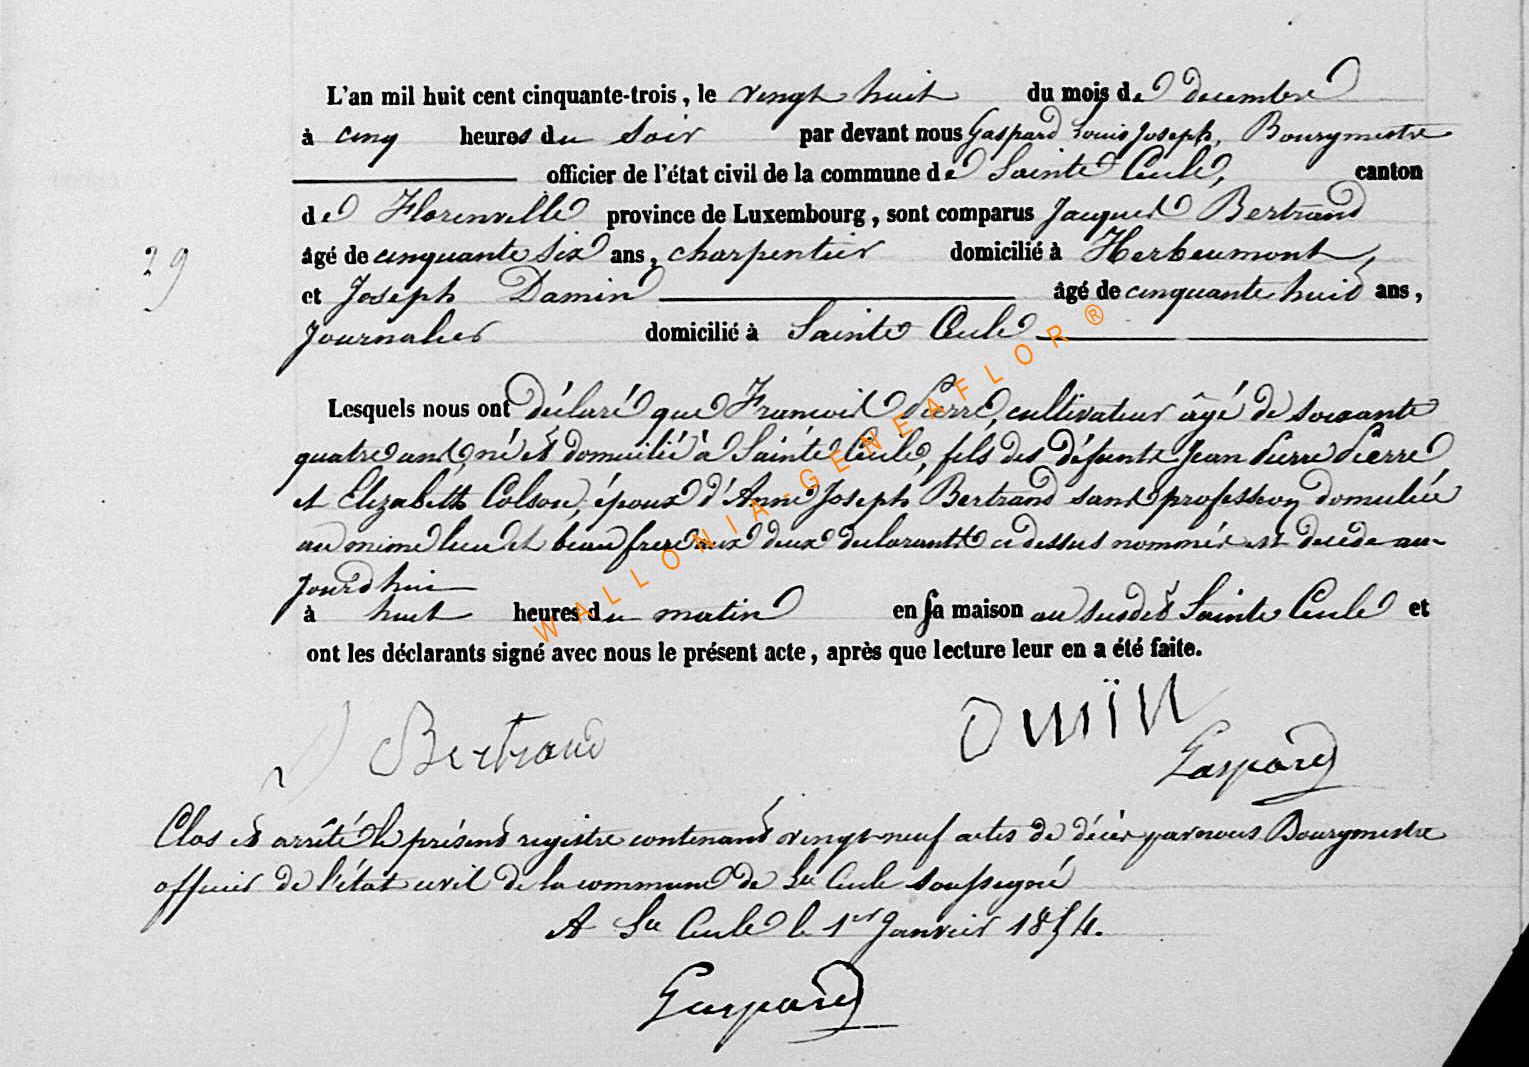 L'an mil huit cent cinquante-trois, le vingt huit du mois de decembre
à cinq heures du soir par devant nous Gaspard Louis Joseph, Bourgmestre
officier de l'état civil de la commune de Sainte Cecile, canton
de Florenville province de Luxembourg, sont comparus Jacques Bertrand
âgé de cinquante six ans, charpentier domicilié à Herbeumont,
29
et Joseph Damin âgé de cinquante huit ans,
Journalier domicilié à Sainte Cecile
Lesquels nous ont déclaré que Francois Pierre, cultivateur âgé de soixante
quatre ans, né et domicilié à Sainte Cécile, fils des défunts Jean Pierre Pierre
et Elizabeth Colson, époux d'Anne Joseph Bertrand sans profession domiciliée
au même lieu et beau frere aux deux declarants ci dessus nommés est decede au-
jourd'hui
à huit heures du matin en sa maison au susdit Sainte Cecile et
ont les déclarants signé avec nous le présent acte, après que lecture leur en a été faite.
J Bertrand
Gaspard
Clos et arrêté le présent registre contenant vingt-neuf actes de décès par nous Bourgmestre
officier de l'état civil de la commune de Ste Cecile soussigné
A Ste Cecile le 1er Janvier 1854.
Gaspard
WALLONIA-GENEAFLOR ®